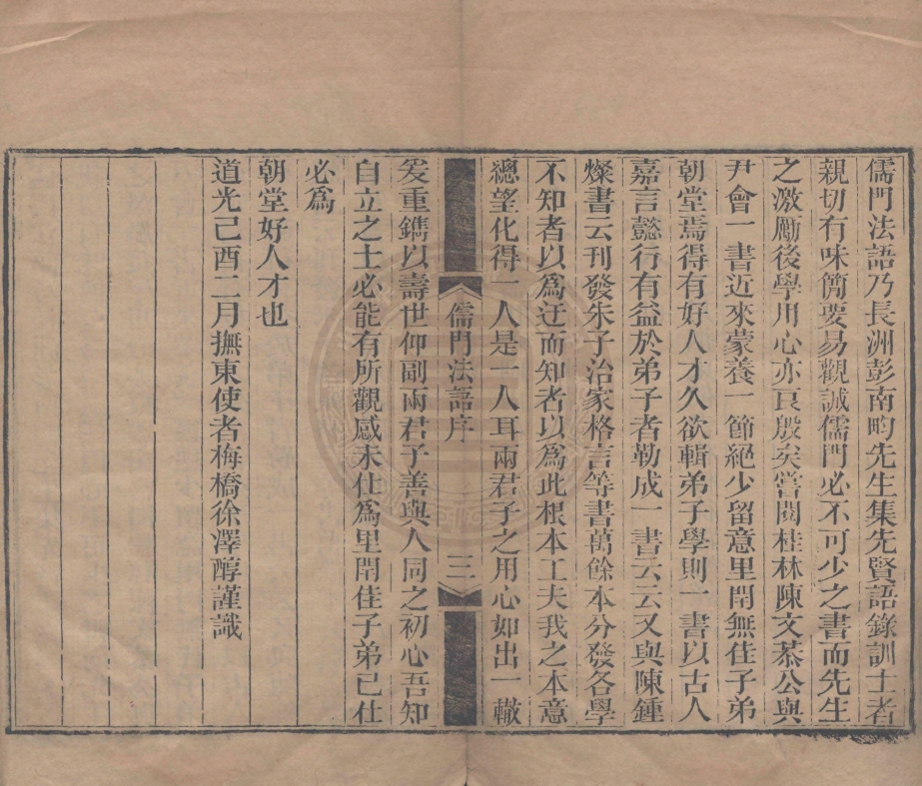 儒門法語乃長洲彭南畇先生集先賢語錄訓士者
親切有味簡要易觀誠儒門必不可少之書而先生
之激勵後學用心亦良殷矣嘗閱桂林陳文恭公與
尹會一書近來蒙養一節絕少留意里閈無佳子弟
朝堂焉得有好人才久欲輯弟子學則一書以古人
嘉言懿行有益於弟子者勒成一書云云又與陳鍾
燦書云刊發朱子治家格言等書萬餘本分發各學
不知者以爲迂而知者以爲此根本工夫我之本意
總望化得一人是一人耳兩君子之用心如出一轍
儒門法語序
三
爰重鐫以壽世仰副兩君子善與人同之初心吾知
自立之士必能有所觀感未仕爲里閈佳子弟已仕
必爲
朝堂好人才也
道光己酉二月撫東使者梅橋徐澤醇謹識